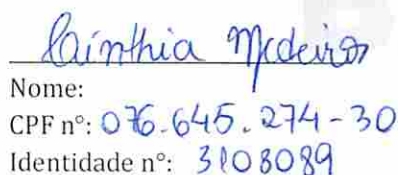 Cinthia Medeiros
Nome:
CPF nº: 076.645.274-30
Identidade nº: 3108089